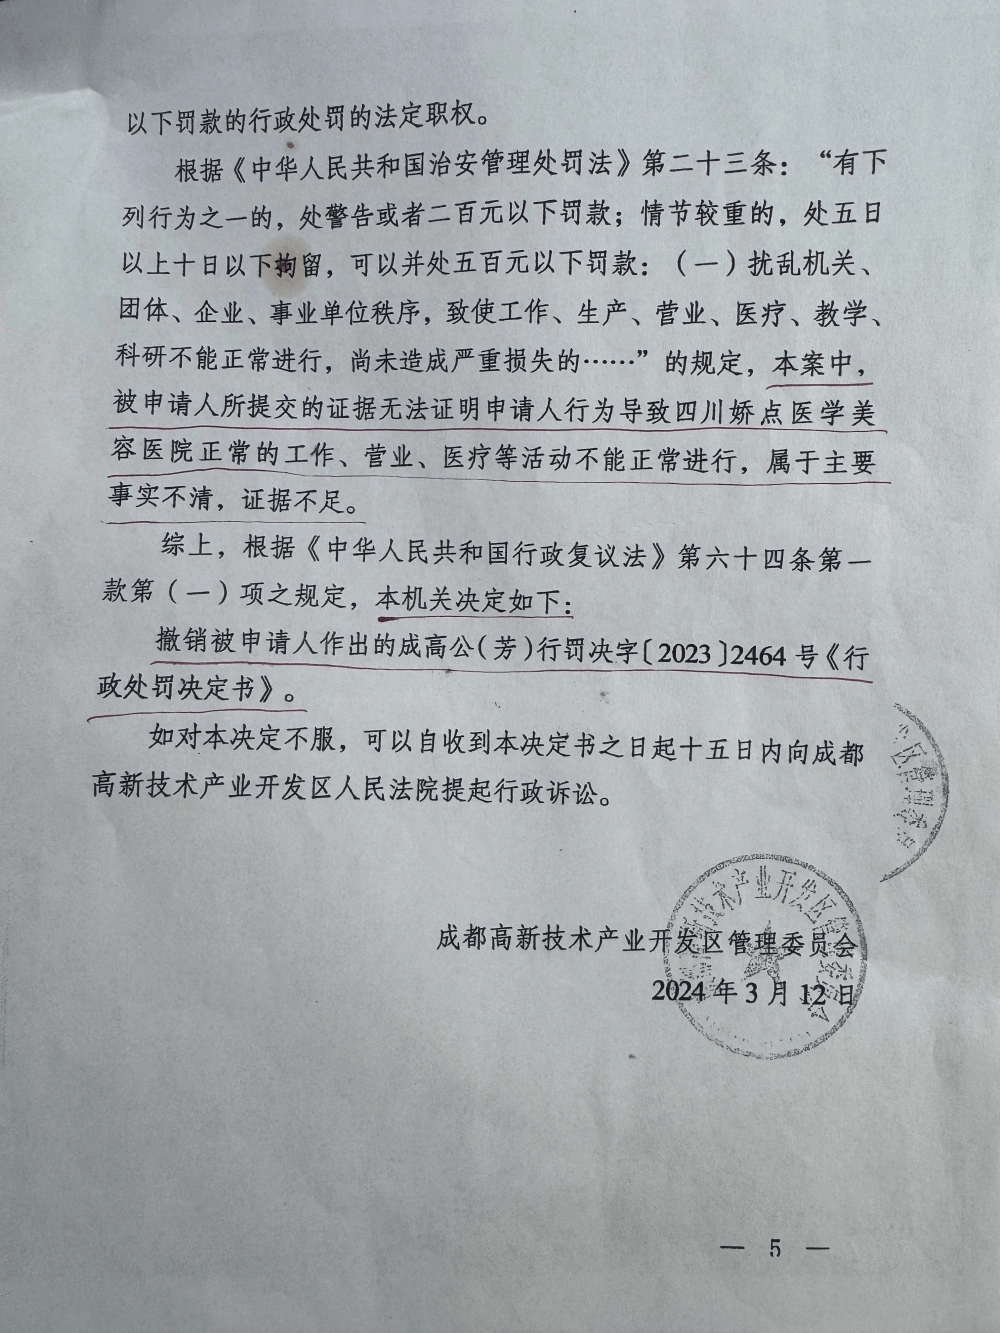 以下罚款的行政处罚的法定职权。
根据《中华人民共和国治安管理处罚法》第二十三条：“有下
列行为之一的，处警告或者二百元以下罚款；情节较重的，处五日
以上十日以下拘留，可以并处五百元以下罚款：（一）扰乱机关、
团体、企业、事业单位秩序，致使工作、生产、营业、医疗、教学、
科研不能正常进行，尚未造成严重损失的……”的规定，本案中，
被申请人所提交的证据无法证明申请人行为导致四川娇点医学美
容医院正常的工作、营业、医疗等活动不能正常进行，属于主要
事实不清，证据不足。
综上，根据《中华人民共和国行政复议法》第六十四条第一
款第（一）项之规定，本机关决定如下：
撤销被申请人作出的成高公（芳）行罚决字〔2023〕2464号《行
政处罚决定书》。
如对本决定不服，可以自收到本决定书之日起十五日内向成都
高新技术产业开发区人民法院提起行政诉讼。
区管理委员
技术产业开发区管理委员会
成都高新技术产业开发区管理委员会
2024年3月12日
— 5 —